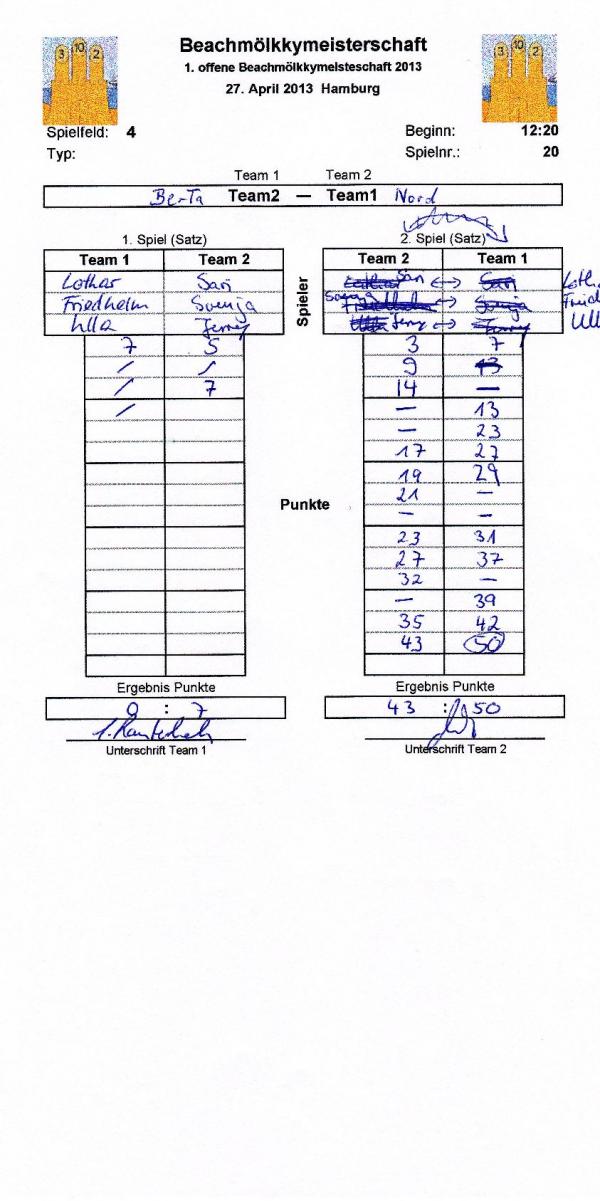 3 10 2
Beachmölkkymeisterschaft
3 10 2
1. offene Beachmölkkymeisteschaft 2013
27. April 2013 Hamburg
Spielfeld: 4
Beginn: 12:20
Typ:
Spielnr.: 20
Team 1 Team 2
BerTa Team2 — Team1 Nord
1. Spiel (Satz)
2. Spiel (Satz)
Team 1 Team 2
Team 2 Team 1
Lothar Sari
Friedhelm Svenja
Ulla Jenny
Spieler
Sari ↔ Sari Loth.
Svenja ↔ Svenja Fried
Ulla Jenny ↔ Jenny Ull
7 5
/ /
/ 7
/
3 7
9 13
14 —
— 13
— 23
17 27
19 29
21 —
— —
23 31
27 37
32 —
— 39
35 42
43 50
Punkte
Ergebnis Punkte
Ergebnis Punkte
0 : 7
43 : 50
Unterschrift Team 1
Unterschrift Team 2